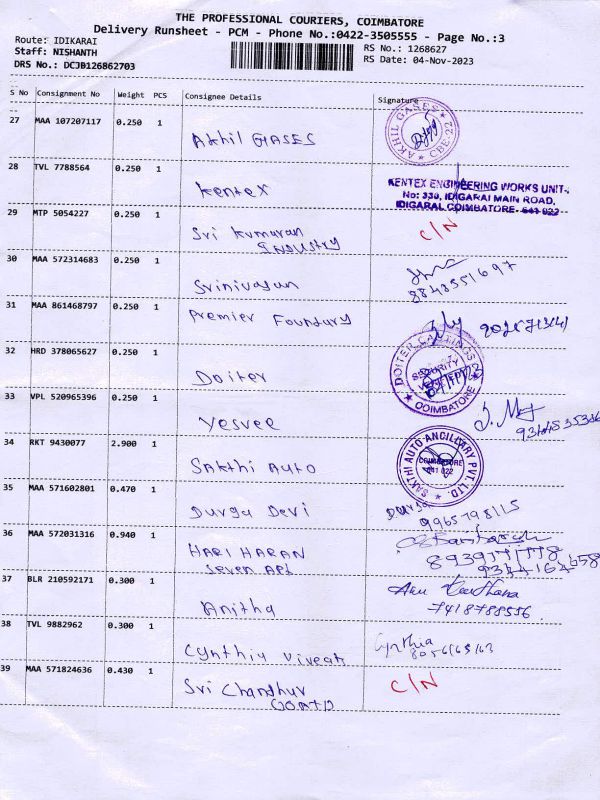 THE PROFESSIONAL COURIERS, COIMBATORE
Delivery Runsheet - PCM - Phone No.:0422-3505555 - Page No.:3
Route: IDIKARAI
Staff: NISHANTH
DRS No.: DCJB126862703
RS No.: 1268627
RS Date: 04-Nov-2023
S No Consignment No Weight PCS Consignee Details Signature
27 MAA 107207117 0.250 1
Akhil GASES
AKHIL GASES CBE-22
28 TVL 7788564 0.250 1
Kentex
KENTEX ENGINEERING WORKS UNIT-,
No: 330, IDIGARAI MAIN ROAD,
IDIGARAI, COIMBATORE- 641 022
29 MTP 5054227 0.250 1
Sri Kumaran
INDUSTRY
C/N
30 MAA 572314683 0.250 1
Srinivasan
8848551697
31 MAA 861468797 0.250 1
Premier Foundary
32 HRD 378065627 0.250 1
Doiter
DOITER CASTINGS
SECURITY
COIMBATORE
33 VPL 520965396 0.250 1
Yesvee
34 RKT 9430077 2.900 1
SAKthi AUTO
SAKTHI AUTO ANCILLARY PVT. LTD.
COIMBATORE
641 022
35 MAA 571602801 0.470 1
Durga Devi
9965798115
36 MAA 572031316 0.940 1
HARI HARAN
Seven APL
37 BLR 210592171 0.300 1
Anitha
7418788556
38 TVL 9882962 0.300 1
Cynthia Vivek
Cynthia
39 MAA 571824636 0.430 1
Sri Chandhur
C/N